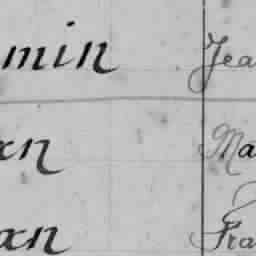 min Jea
an Ma
an Fra